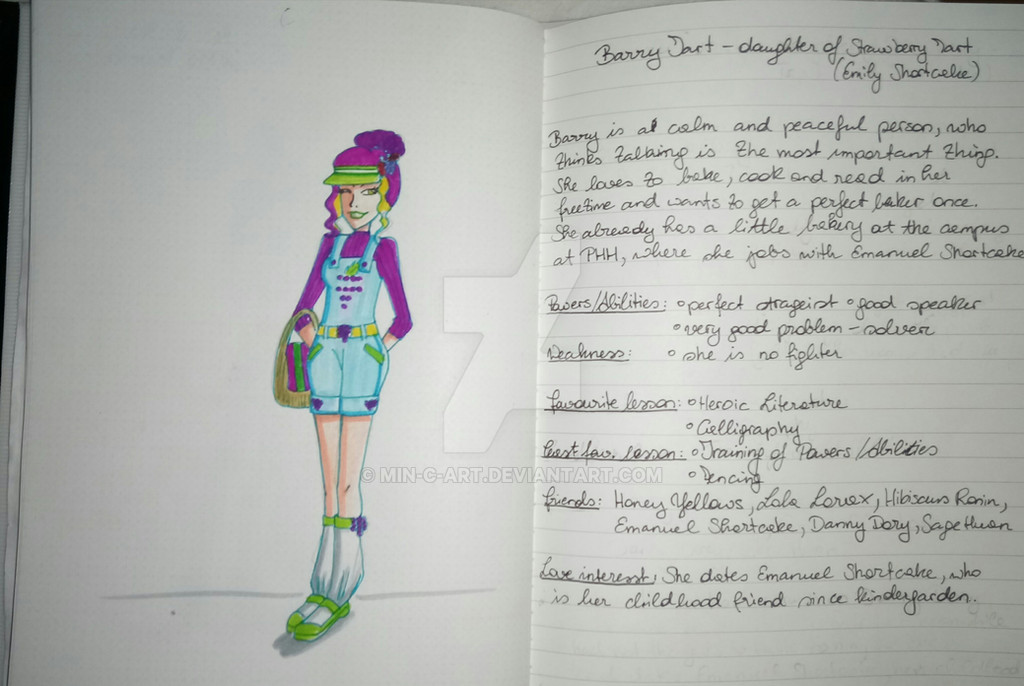 Barry Tart - daughter of Strawberry Tart
(Emily Shortcake)
Barry is a calm and peaceful person, who
thinks talking is the most important thing.
She loves to bake, cook and read in her
freetime and wants to get a perfect baker once.
She already has a little bakery at the campus
at PHH, where she jobs with Emanuel Shortcake
Powers/Abilities: ° perfect strageist ° good speaker
° very good problem - solver
Weakness: ° she is no fighter
favourite lesson: ° Heroic Literature
° Calligraphy
least fav. lesson: ° Training of Powers/Abilities
° Fencing
friends: Honey Yellows, Lola Lorax, Hibiscus Ronin,
Emanuel Shortcake, Danny Dory, Sage Huan
Love interesst: She dates Emanuel Shortcake, who
is her childhood friend since kindergarden.
© MIN-C-ART.DEVIANTART.COM